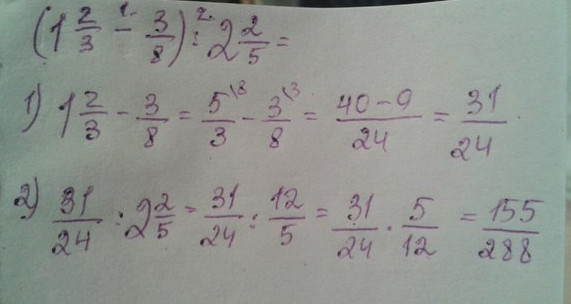 (1 2/3 - 3/8) : 2 2/5 =
1) 1 2/3 - 3/8 = 5/3 \8 - 3/8 \3 = 40-9/24 = 31/24
2) 31/24 : 2 2/5 = 31/24 : 12/5 = 31/24 · 5/12 = 155/288